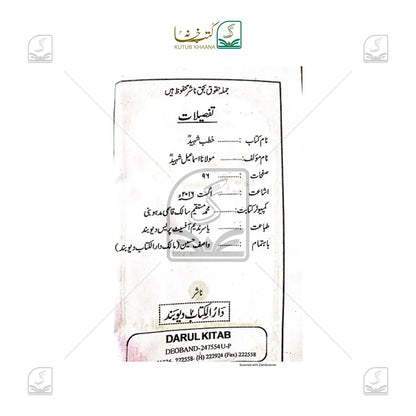 کتب خانہ
KUTUB KHAANA
جملہ حقوق بحق ناشر محفوظ ہیں
تفصیلات
نام کتاب ............ خطب شہیدؒ
نام مؤلف ............ مولانا اسماعیل شہیدؒ
صفحات ............ ۹۶
اشاعت ............ اگست ۲۰۱۶ء
کمپیوٹر کتابت ............ محمد مستقیم سالک قاسمی مدہوبنی
طباعت ............ یاسر ندیم آفسیٹ پریس دیوبند
باہتمام ............ واصف حسین (مالک دارالکتاب دیوبند)
ناشر
دارالکتاب دیوبند
DARUL KITAB
DEOBAND-247554 U-P
222558- (H) 222924 (Fax) 222558
Scanned with CamScanner